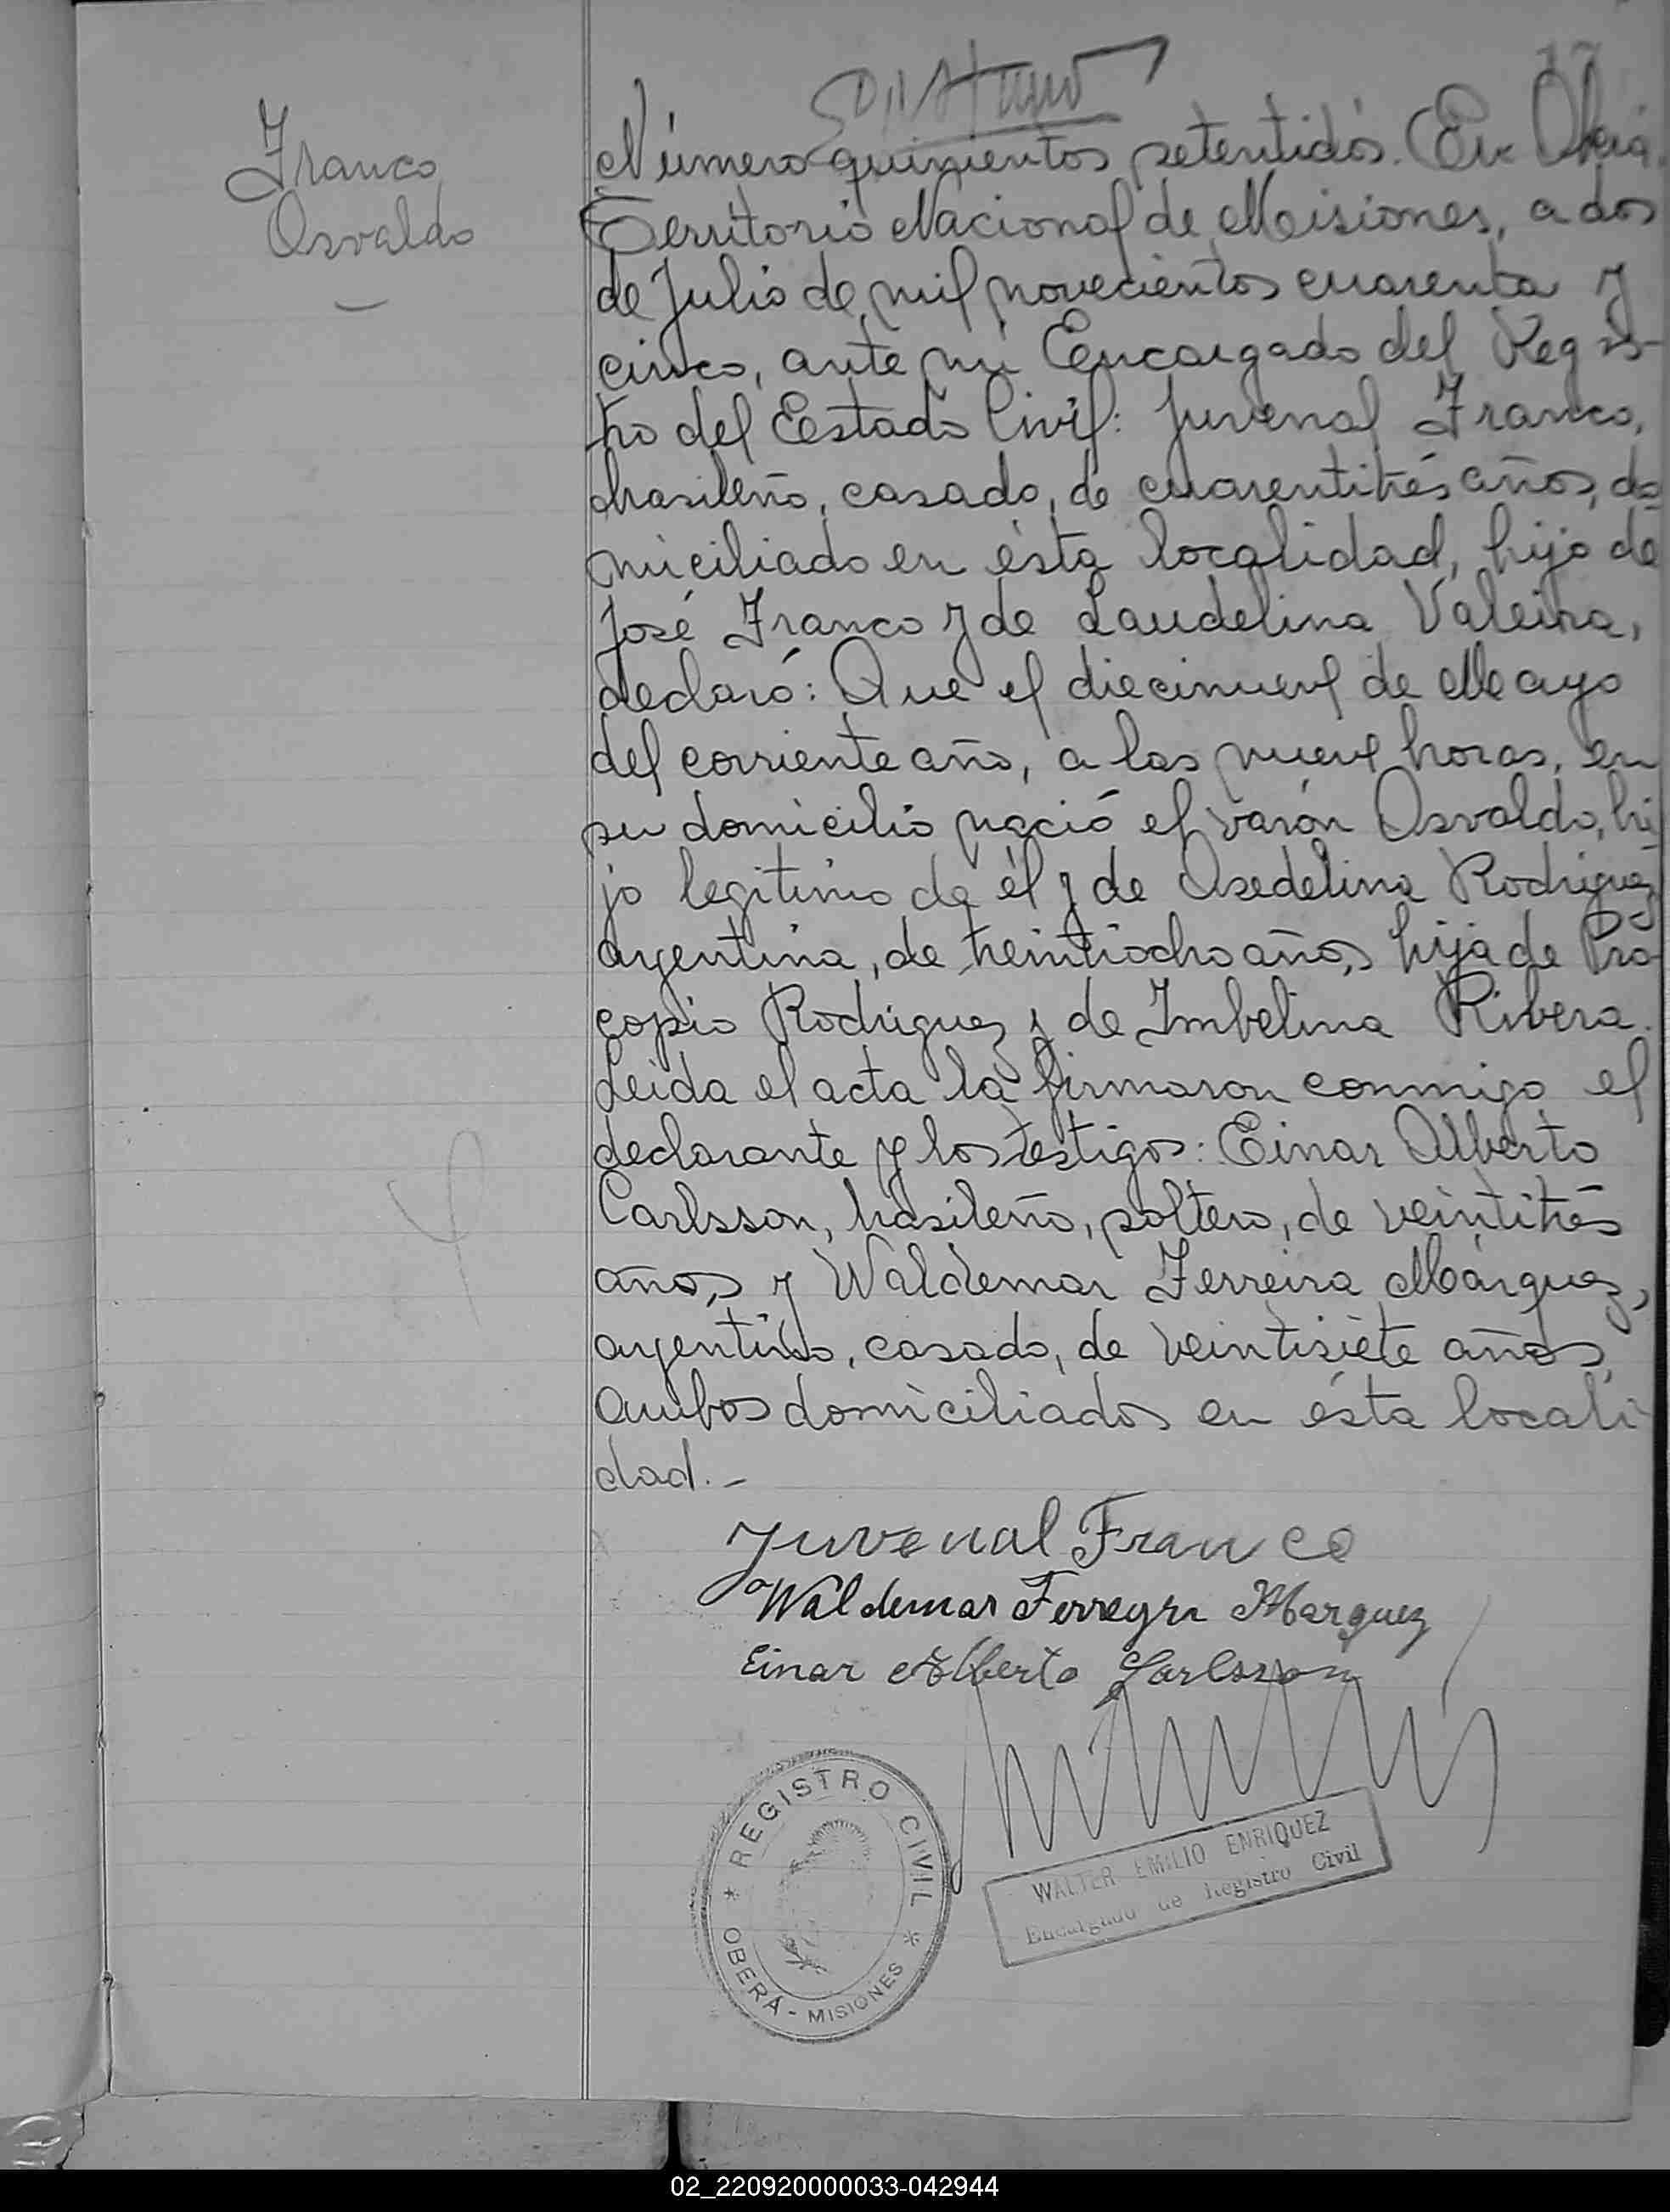 Franco
Osvaldo
17
Número quinientos setentidós. En Oberá,
Territorio Nacional de Misiones, a dos
de Julio de mil novecientos cuarenta y
cinco, ante mí Encargado del Regis-
tro del Estado Civil: Juvenal Franco,
brasileño, casado, de cuarentitrés años, do
miciliado en ésta localidad, hijo de
José Franco y de Laudelina Valeira,
declaró: Que el diecinueve de Mayo
del corriente año, a las nueve horas, en
su domicilio nació el varón Osvaldo, hi
jo legítimo de él y de Asedelina Rodriguez
argentina, de treintiocho años, hija de Pro
copio Rodriguez y de Imbelina Ribera.
Leida el acta la firmaron conmigo el
declarante y los testigos: Einar Alberto
Carlsson, brasileño, soltero, de veintitrés
años, y Waldemar Ferreira Márquez,
argentino, casado, de veintisiete años,
ambos domiciliados en ésta locali
dad.-
Juvenal Franco
Waldemar Ferreyra Marquez
Einar Alberto Carlsson
REGISTRO CIVIL
OBERÁ - MISIONES
WALTER EMILIO ENRIQUEZ
Encargado de Registro Civil
02_220920000033-042944